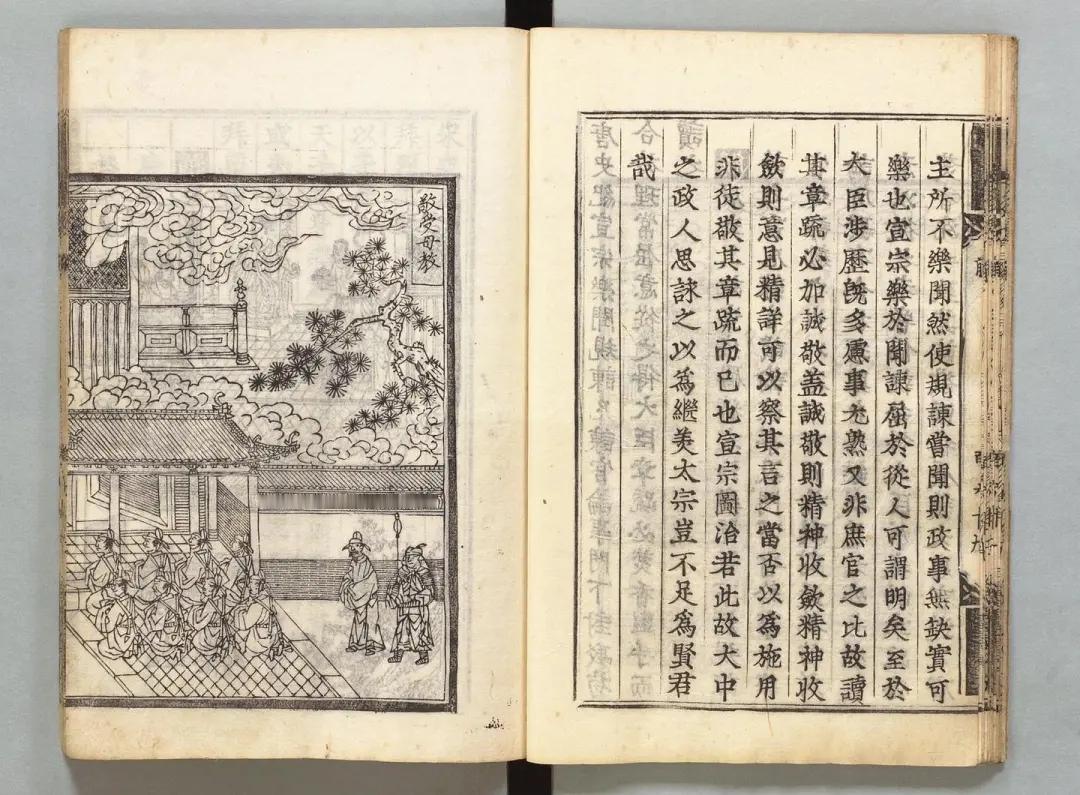 主所不樂聞然使規諫嘗聞則政事無缺實可
樂也宣宗樂於聞諫屈於從人可謂明矣至於
大臣涉歷旣多慮事尤熟又非庶官之比故讀
其章疏必加誠敬盖誠敬則精神收斂精神收
斂則意見精詳可以察其言之當否以為施用
非徒敬其章疏而已也宣宗圖治若此故大中
之政人思詠之以為繼美太宗豈不足為賢君
哉
敬受母教